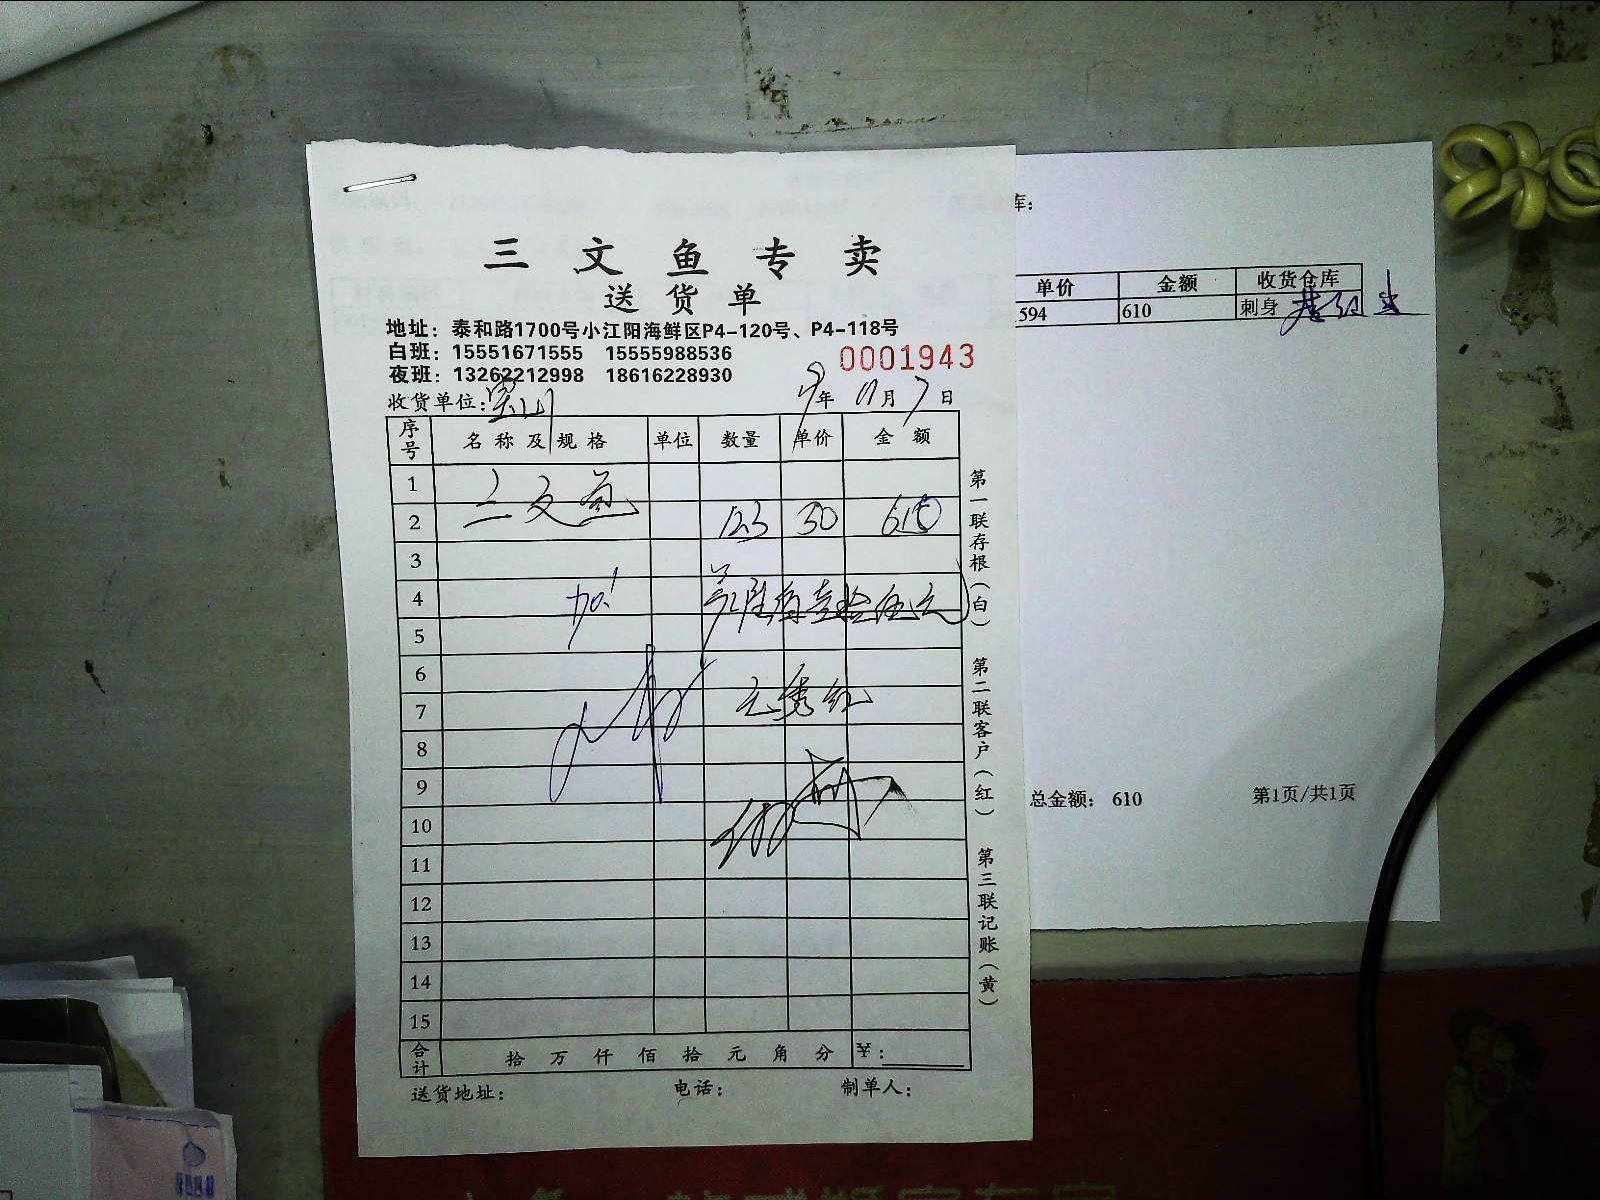 三文鱼专卖
送货单
地址：泰和路1700号小江阳海鲜区P4-120号、P4-118号
白班：15551671555 15555988536
夜班：13262212998 18616228930
0001943
收货单位：宝山 年 月 7 日
序号 名称及规格 单位 数量 单价 金额
1 三文鱼
2 123 50 615
3
4
5
6
7 秀红
8
9
10
11
12
13
14
15
合计 拾万仟佰拾元角分 ¥：
送货地址： 电话： 制单人：
第一联存根（白） 第二联客户（红） 第三联记账（黄）
库：
单价 金额 收货仓库
594 610 刺身
总金额： 610 第1页/共1页